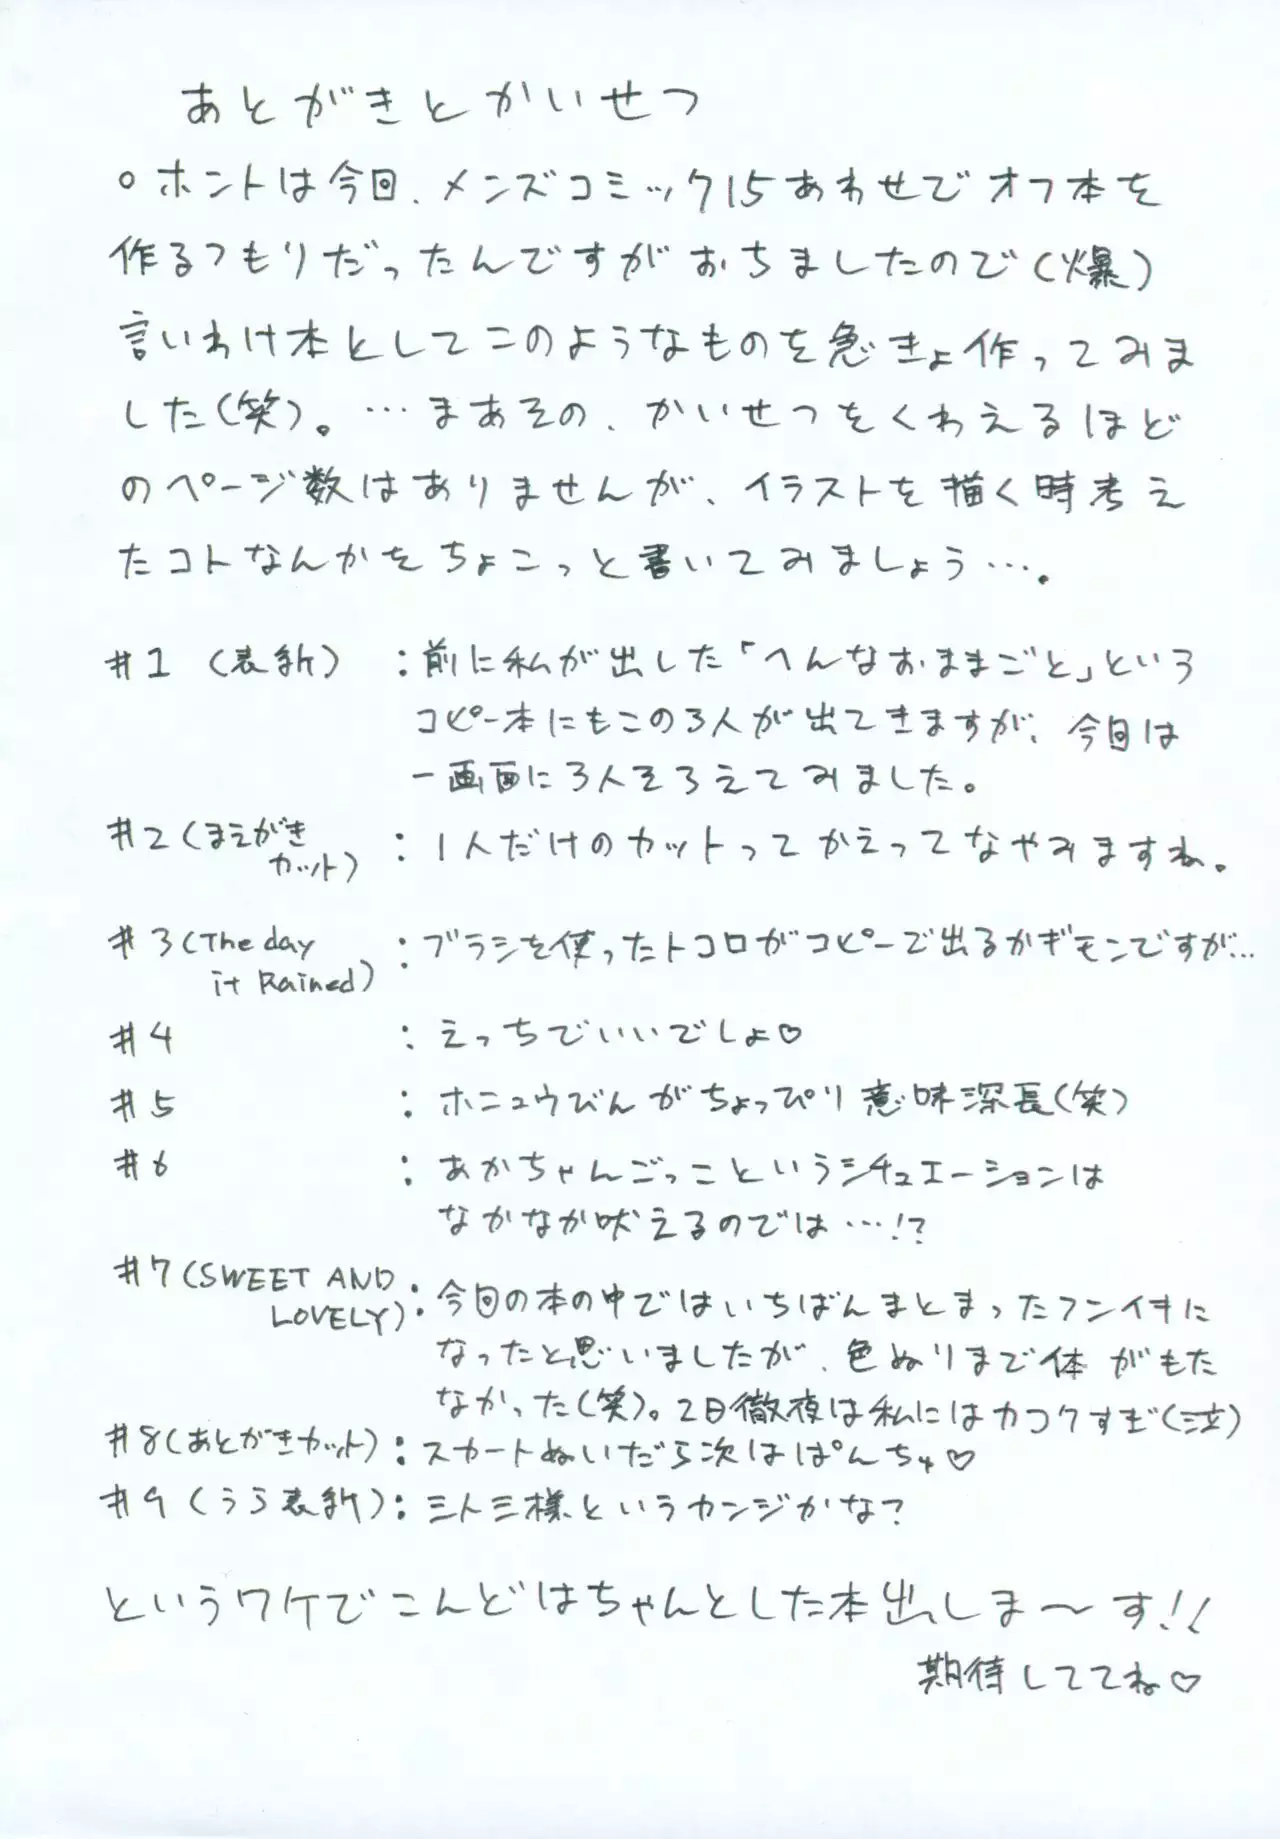 あとがきとかいせつ
○ホントは今回、メンズコミック15あわせでオフ本を
作るつもりだったんですがおちましたので(爆)
言いわけ本としてこのようなものを急きょ作ってみま
した(笑)。…まあその、かいせつをくわえるほど
のページ数はありませんが、イラストを描く時考え
たコトなんかをちょこっと書いてみましょう…。
#1 (表紙) : 前に私が出した「へんなおままごと」という
コピー本にもこの3人が出てきますが、今回は
一画面に3人そろえてみました。
#2 (まえがき
カット) : 1人だけのカットってかえってなやみますね。
#3 (The day
it Rained) : ブラシを使ったトコロがコピーで出るかギモンですが…
#4 : えっちでいいでしょ♡
#5 : ホニュウびんがちょっぴり意味深長(笑)
#6 : あかちゃんごっこというシチュエーションは
なかなか吠えるのでは…!?
#7 (SWEET AND
LOVELY) : 今回の本の中ではいちばんまとまったフンイキに
なったと思いましたが、色ぬりまで体がもた
なかった(笑)。2日徹夜は私にはカコクすぎ(泣)
#8 (あとがきカット) : スカートぬいだら次はぱんちゅ♡
#9 (うら表紙) : 三人三様というカンジかな?
というワケでこんどはちゃんとした本出しま〜す!!
期待しててね♡